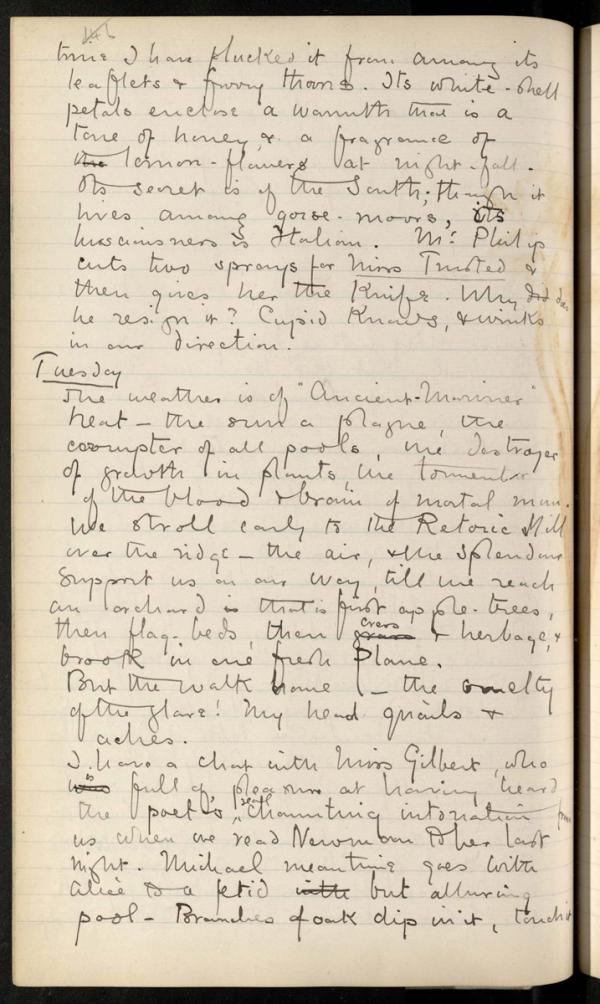 146
time I have plucked it from among its
leaflets & furry thorns. Its white-shell
petals enclose a warmth that is a
tone of honey, & a fragrance of
the lemon-flowers at night-fall.
Its secret is of the South; though it
lives among gorse-moors, its
lusciousness is Italian. Mr. Philip
cuts two sprays for Miss Trusted &
then gives her the Knife. Why did does
he resign it? Cupid Knows, & winks
in our direction.
Tuesday
The weather is of "Ancient-Mariner"
heat – the sun a plague, the
corrupter of all pools, the destroyer
of growth in plants, the tormentor
of the blood & brain of mortal man.
We stroll early to the Retoric Mill
over the ridge – the air, & the splendour
support us on our way, till we reach
an orchard is that is first apple-trees,
then flag-beds, then grass cress & herbage, &
brook in one fresh plane.
But the walk home – the cruelty
of the glare! My head quails &
aches.
I have a chat with Miss Gilbert, who
was full of pleasure at having heard
the poet's chaunting intonation from
us when we read Newman to her last
night. Michael meantime goes with
Alice to a fetid with but alluring
pool – Branches of oak dip in it, touch it